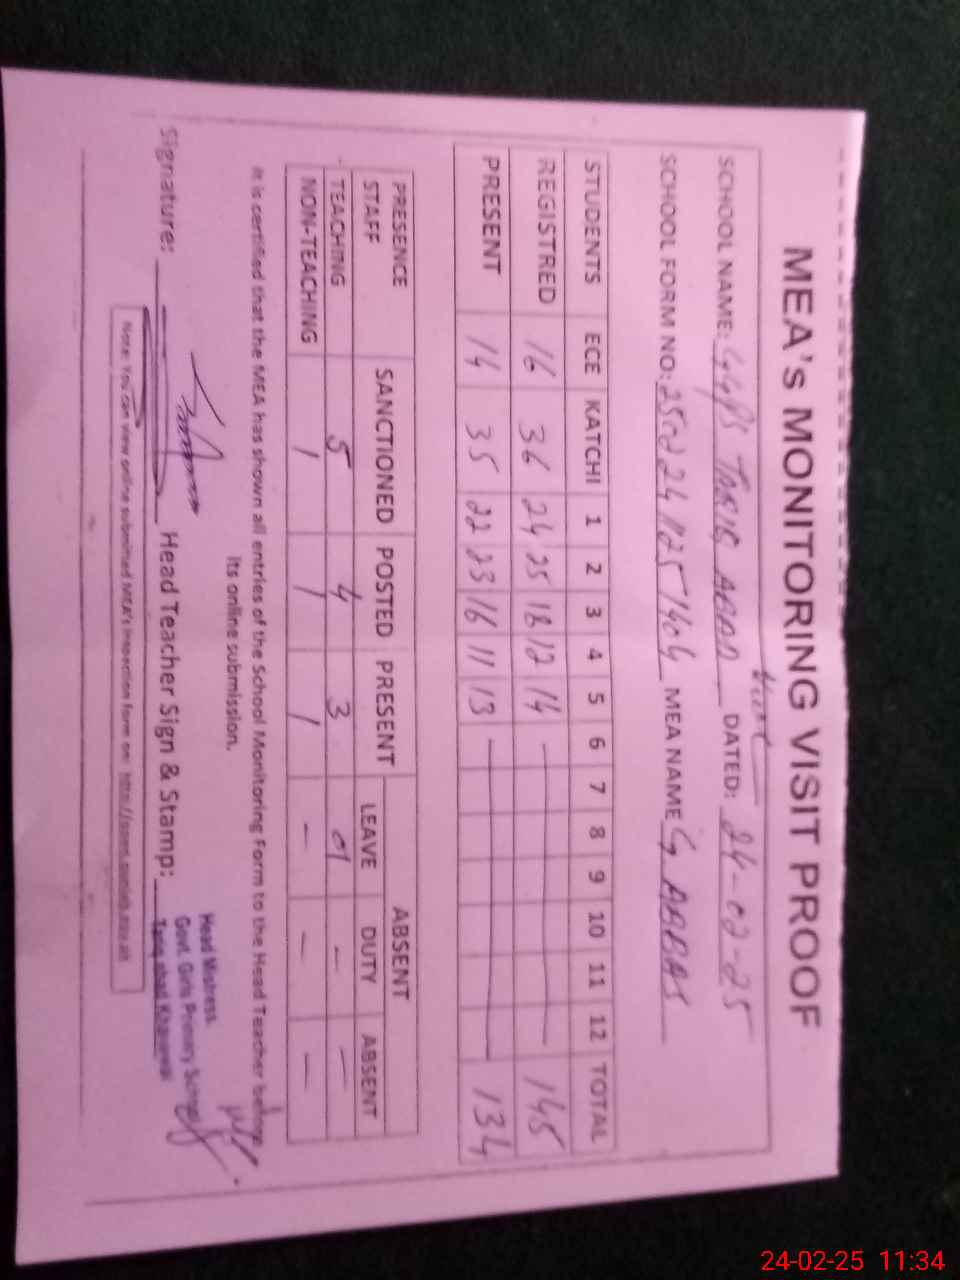 MEA's MONITORING VISIT PROOF
SCHOOL NAME: GGPS TARIQ ABAD DATED: 24-02-25
SCHOOL FORM NO: MEA NAME G ABBAS
STUDENTS ECE KATCHI 1 2 3 4 5 6 7 8 9 10 11 12 TOTAL
REGISTRED 16 36 24 25 18 12 14 — 145
PRESENT 14 35 22 23 16 11 13 — 134
PRESENCE STAFF SANCTIONED POSTED PRESENT ABSENT
LEAVE DUTY ABSENT
TEACHING 5 4 3 01 — —
NON-TEACHING 1 1 1 — — —
It is certified that the MEA has shown all entries of the School Monitoring Form to the Head Teacher before
its online submission.
Signature: Head Teacher Sign & Stamp:
Head Mistress
Govt. Girls Primary School
Note: You can view online submitted MEA's inspection form on:
24-02-25 11:34